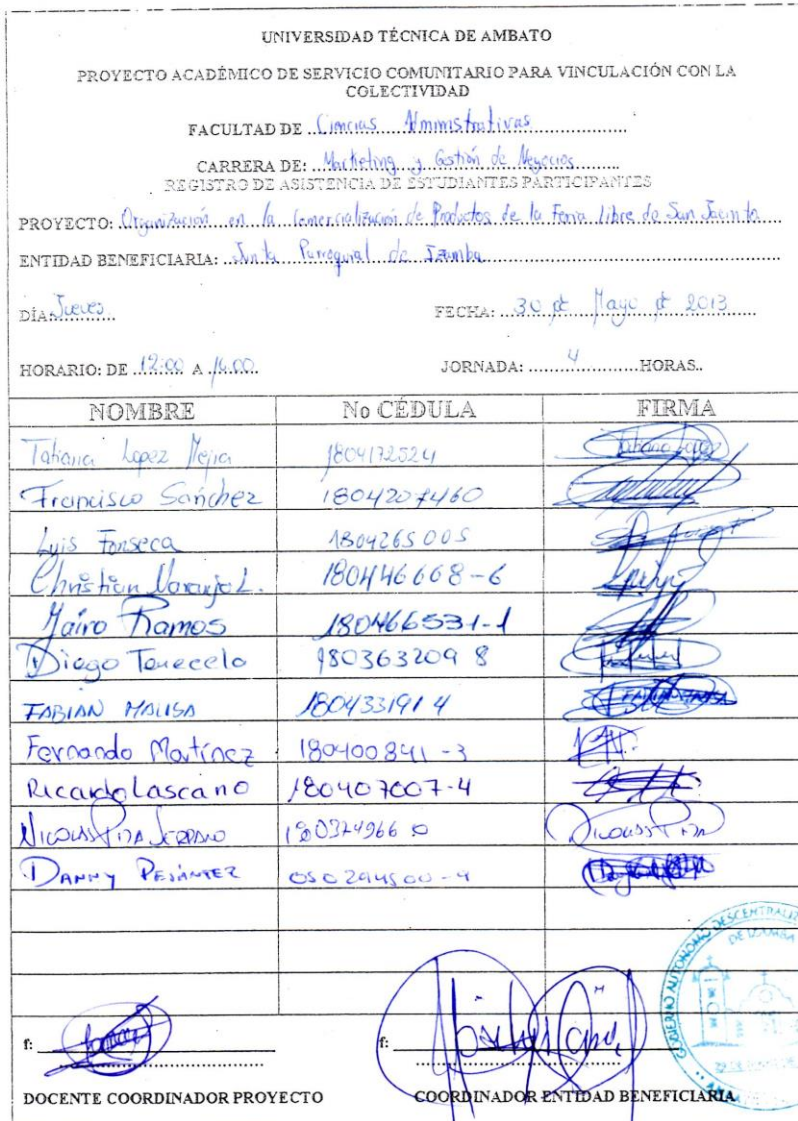 UNIVERSIDAD TÉCNICA DE AMBATO
PROYECTO ACADÉMICO DE SERVICIO COMUNITARIO PARA VINCULACIÓN CON LA
COLECTIVIDAD
FACULTAD DE Ciencias Administrativas
CARRERA DE: Marketing y Gestión de Negocios
REGISTRO DE ASISTENCIA DE ESTUDIANTES PARTICIPANTES
PROYECTO: Organización en la Comercialización de Productos de la Feria Libre de San Jacinto
ENTIDAD BENEFICIARIA: Junta Parroquial de Izamba
DÍA: Jueves FECHA: 30 de Mayo de 2013
HORARIO: DE 12:00 A 16:00 JORNADA: 4 HORAS..
NOMBRE No CÉDULA FIRMA
Tatiana Lopez Mejia 1804172524 Tatiana Lopez
Francisco Sánchez 1804207460
Luis Fonseca 1804265005
Christian Naranjo L. 180446668-6
Jairo Ramos 180466531-1
Diego Tonecelo 180363209 8
FABIAN MALISA 180433191 4
Fernando Martínez 180400841-3
Ricardo Lascano 180407007-4
NICOLAS PITA SERRANO 180374966 0 NICOLAS PITA
DANNY PESÁNTEZ 050294500-4
f: f:
DOCENTE COORDINADOR PROYECTO COORDINADOR ENTIDAD BENEFICIARIA
GOBIERNO AUTONOMO DESCENTRALIZ
DE IZAMBA